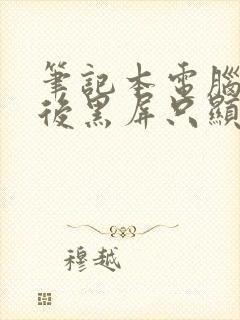 筆記本電腦
後黑屏只顯
穆越